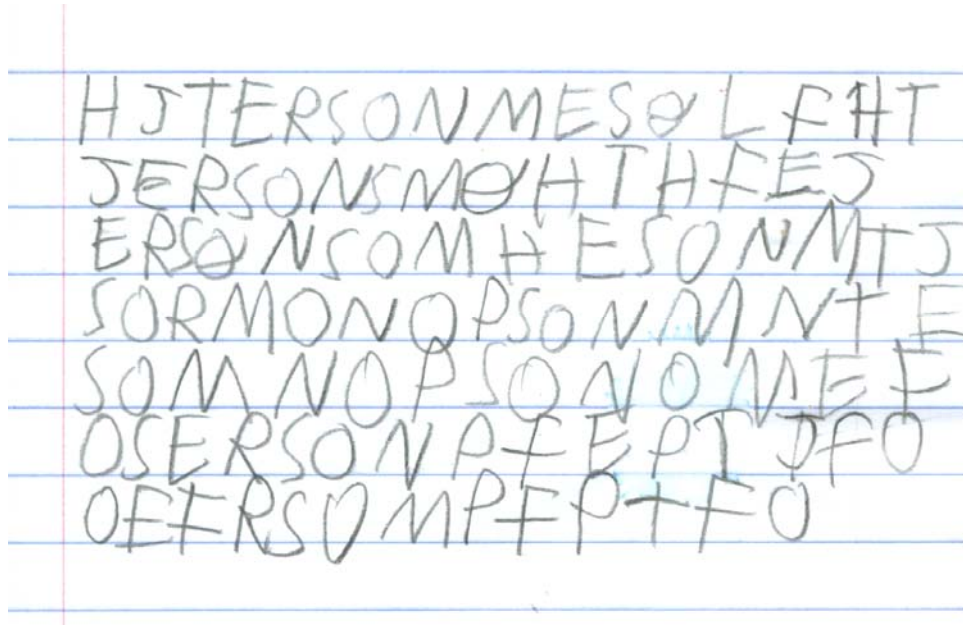 HJTERSONMESOLFHT
JERSONSMOHTHFEJ
ERSONSOMHESONMTJ
SORMONOPSONMNTE
SOMNOPSONOMEF
OSERSONPFEPTJFO
OEFRSOMPFPTFO